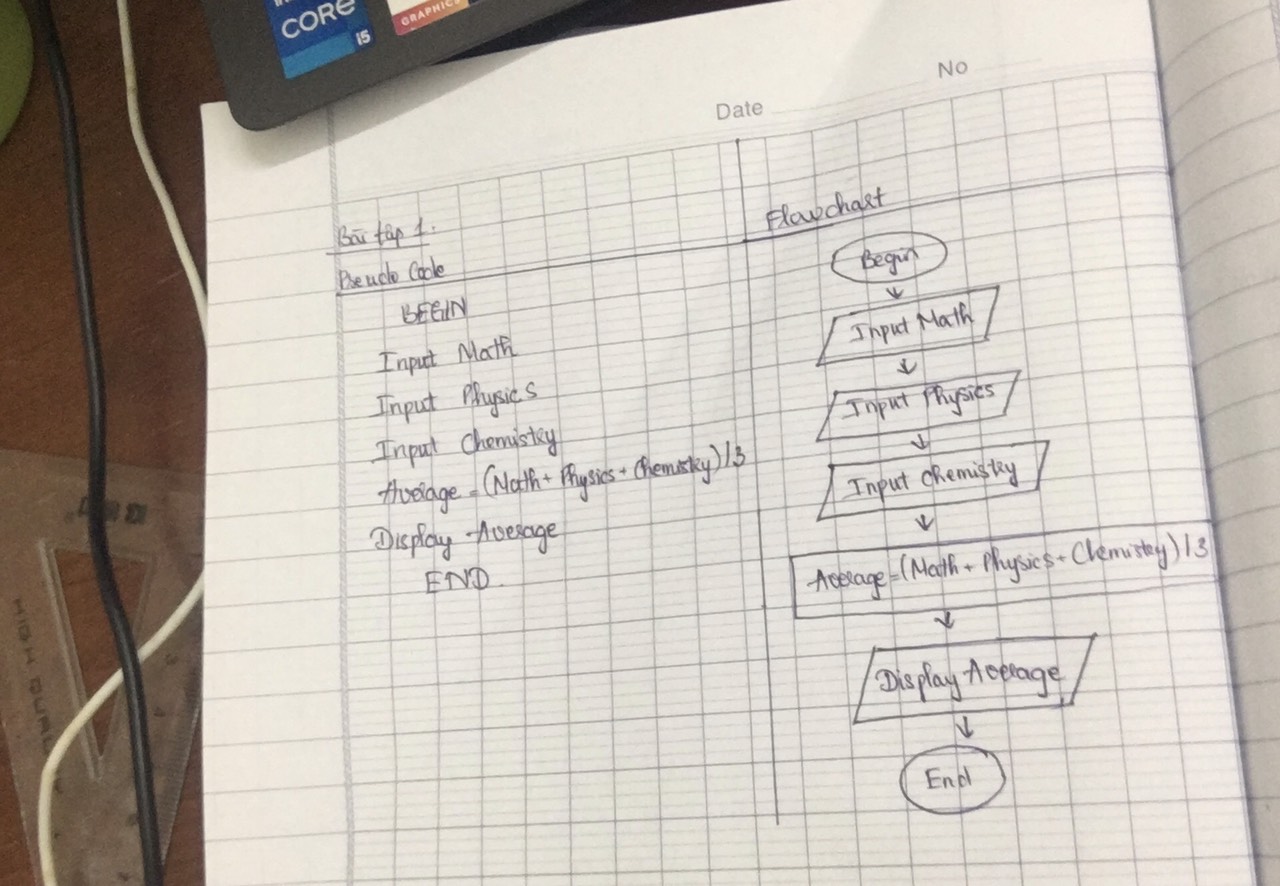 CORE
i5
GRAPHICS
No
Date
Bài tập 1:
Pseudo Code
BEGIN
Input Math
Input Physics
Input Chemistry
Average = (Math + Physics + Chemistry) / 3
Display Average
END
Flowchart
Begin
Input Math
Input Physics
Input Chemistry
Average = (Math + Physics + Chemistry) / 3
Display Average
End
HIGH QUAL